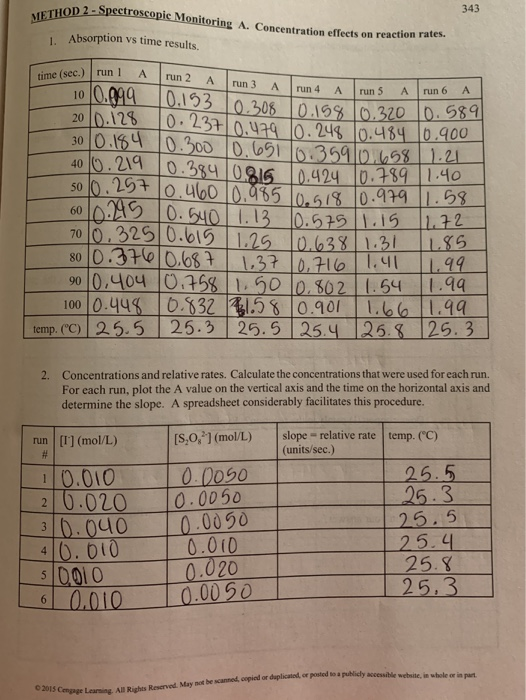 343
METHOD 2 - Spectroscopic Monitoring A. Concentration effects on reaction rates.
1. Absorption vs time results.
time (sec.) run 1 A run 2 A run 3 A run 4 A run 5 A run 6 A
10 0.099 0.153 0.308 0.158 0.320 0.589
20 0.128 0.237 0.479 0.248 0.484 0.900
30 0.184 0.300 0.651 0.359 0.658 1.21
40 0.219 0.384 0.815 0.424 0.789 1.40
50 0.257 0.460 0.985 0.518 0.979 1.58
60 0.295 0.540 1.13 0.575 1.15 1.72
70 0.325 0.615 1.25 0.638 1.31 1.85
80 0.376 0.687 1.37 0.716 1.41 1.99
90 0.404 0.758 1.50 0.802 1.54 1.99
100 0.448 0.832 1.58 0.901 1.66 1.99
temp. (°C) 25.5 25.3 25.5 25.4 25.8 25.3
2. Concentrations and relative rates. Calculate the concentrations that were used for each run.
For each run, plot the A value on the vertical axis and the time on the horizontal axis and
determine the slope. A spreadsheet considerably facilitates this procedure.
run # [I⁻] (mol/L) [S₂O₈²⁻] (mol/L) slope = relative rate (units/sec.) temp. (°C)
1 0.010 0.0050 25.5
2 0.020 0.0050 25.3
3 0.040 0.0050 25.5
4 0.010 0.010 25.4
5 0.010 0.020 25.8
6 0.010 0.0050 25.3
© 2015 Cengage Learning. All Rights Reserved. May not be scanned, copied or duplicated, or posted to a publicly accessible website, in whole or in part.